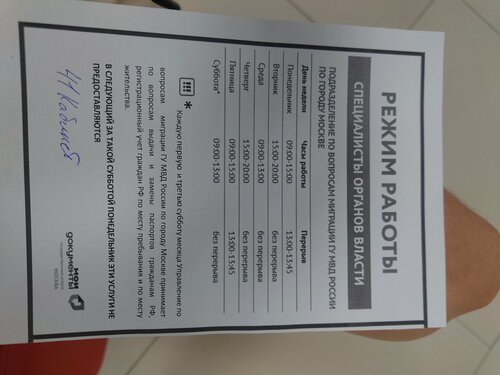 РЕЖИМ РАБОТЫ
СПЕЦИАЛИСТЫ ОРГАНОВ ВЛАСТИ
ПОДРАЗДЕЛЕНИЕ ПО ВОПРОСАМ МИГРАЦИИ ГУ МВД РОССИИ
ПО ГОРОДУ МОСКВЕ
День недели Часы работы Перерыв
Понедельник 09:00-15:00 13:00-13:45
Вторник 15:00-20:00 без перерыва
Среда 09:00-13:00 без перерыва
Четверг 15:00-20:00 без перерыва
Пятница 09:00-15:00 13:00-13:45
Суббота* 09:00-13:00 без перерыва
!!! * Каждую первую и третью субботу месяца Управление по
вопросам миграции ГУ МВД России по городу Москве принимает
по вопросам выдачи и замены паспортов гражданам РФ,
регистрационный учет граждан РФ по месту пребывания и по месту
жительства.
В СЛЕДУЮЩИЙ ЗА ТАКОЙ СУББОТОЙ ПОНЕДЕЛЬНИК ЭТИ УСЛУГИ НЕ
ПРЕДОСТАВЛЯЮТСЯ
41 Кабинет
мои
документы
МОСКВА